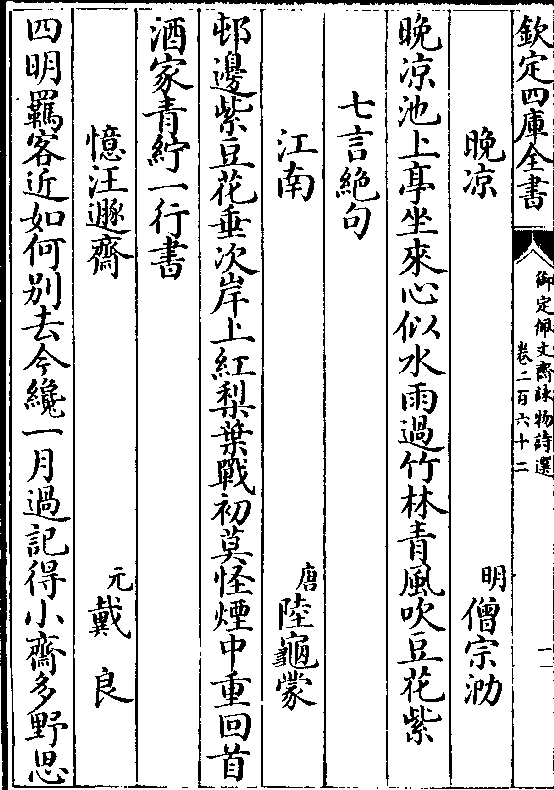 欽定四庫全書
御定佩文齋詠物詩選
卷二百六十二
晚凉 明 僧宗泐
晚凉池上亭坐來心似水雨過竹林青風吹豆花紫
七言絶句
江南 唐 陸龜蒙
邨邊紫豆花垂次岸上紅梨葉戰初莫怪煙中重回首
酒家青紵一行書
憶汪遯齋 元 戴良
四明羈客近如何别去今纔一月過記得小齋多野思